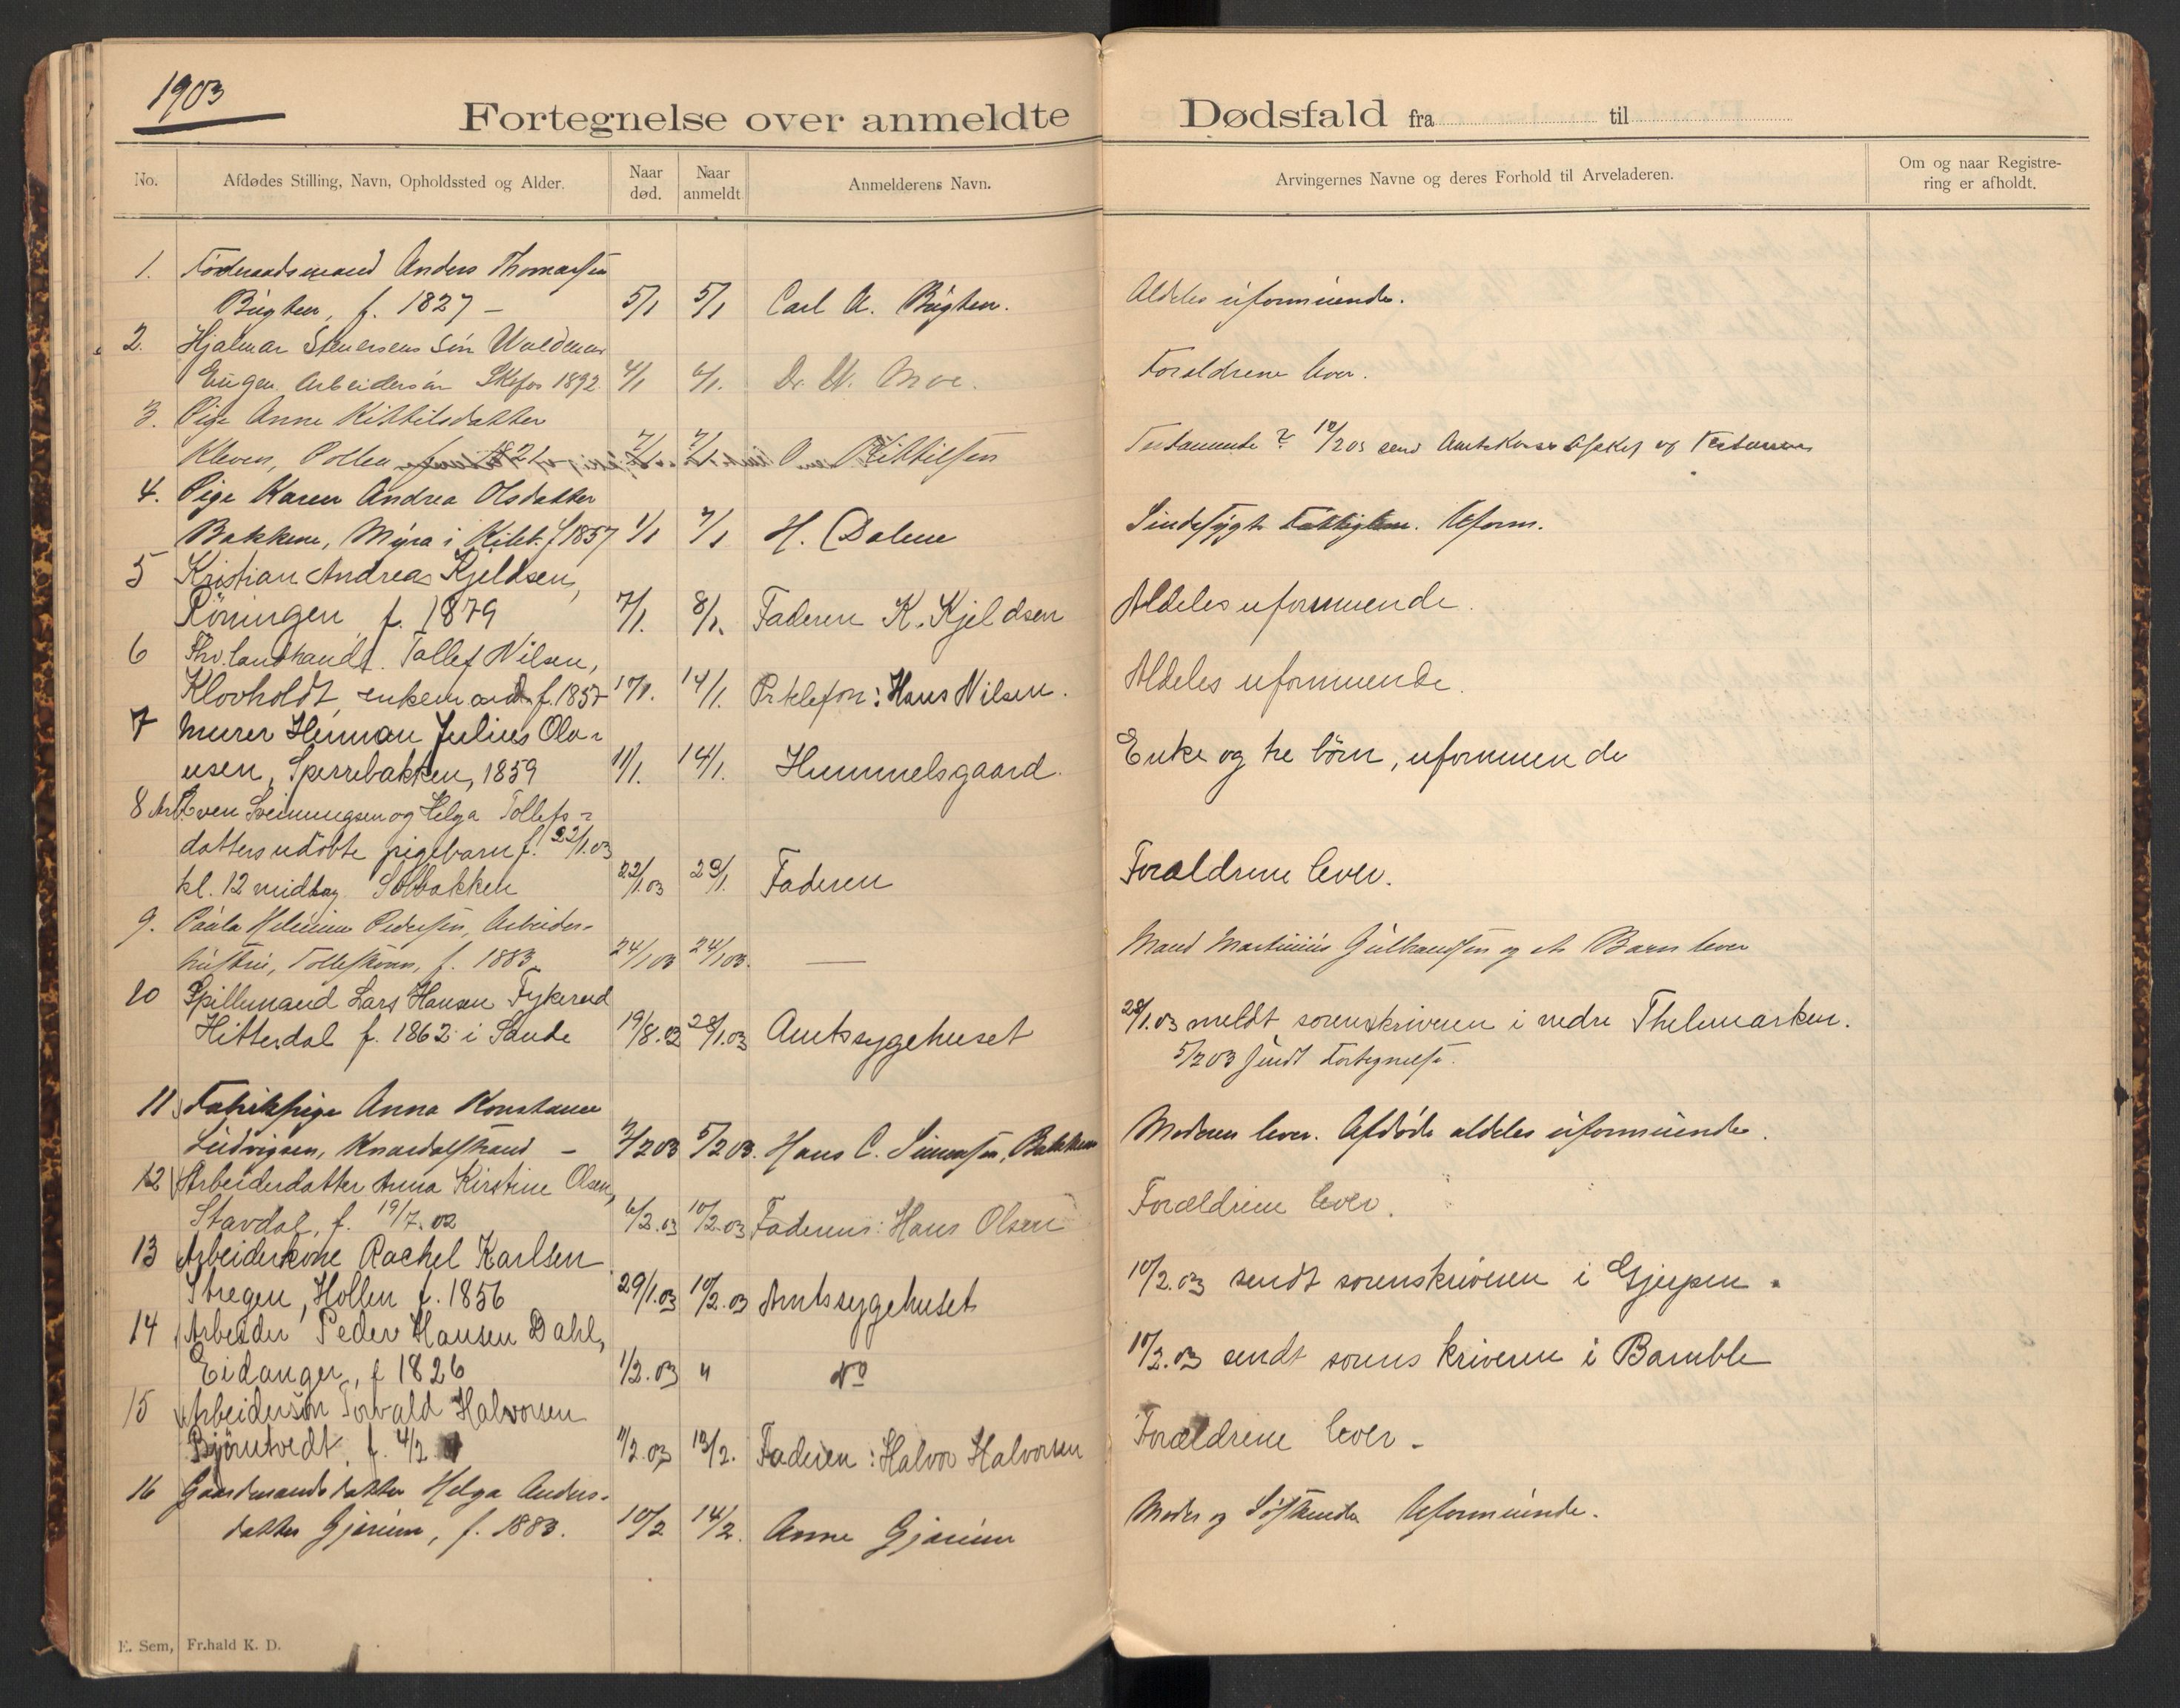 1903
Fortegnelse over anmeldte Dødsfald fra til
No. Afdødes Stilling, Navn, Opholdssted og Alder. Naar død. Naar anmeldt Anmelderens Navn. Arvingernes Navne og deres Forhold til Arveladeren. Om og naar Registrering er afholdt.
1. Föderaadsmand Anders Thomassen
Bugten, f. 1827 – 5/1 5/1 Carl A. Bugten. Aldeles uformuende.
2. Hjalmar Stenersens Sön Waldemar
Eugen. Arbeidersön Skefos 1892. 4/1 6/1. Dr. Moe. Forældrene lever.
3. Pige Anne Kittilsdatter
Kleven, Pollen f. 1821 7/1 Kittilsen Testamente ? 10/2 03 send
4. Pige Karen Andrea Olsdatter
Bakkene, Myra i f 1857 1/1 7/1 H. Dalene Sindssygt Fattiglem. Uform.
5 Kristian Andreas Kjeldsen,
Röningen, f. 1879 7/1. 8/1. Faderen K. Kjeldsen Aldeles uformuende.
6 Fhv. landhandl. Tollef Nilsen,
Klovholdt, enkemand f. 1857 14/1. Pr telefon: Hans Nilsen. Aldeles uformuende.
7 Murer Herman Julius Olav-
usen, Sperrebakken, 1859 11/1. 14/1. Hummelsgaard. Enke og tre börn, uformuende
8 Arb. Even Sveinungsen og Helga Tollefs-
datters udöbte pigebarn f. 22/1.03
kl. 12 middag Solbakken 22/1.03 23/1. Faderen Forældrene lever.
9. Paula Helmine Pedersen, Arbeider-
hustru, f. 1883. 24/1 03 24/1 03. — Mand Martinius og et Barn lever
10 Spillemand Lars Hansen Tykerud
Hitterdal f. 1862 i Sande 19/8.02 28/1.03 Amtssygehuset 28/1.03 meldt sorenskriveren i nedre Thelemarken.
5/2 03 sendt Fortegnelse.
11. Fabrikpige Anna Konstanse
Ludvigsen, Knardalstrand – 3/2 03 5/2 03. Hans C. Simonsen, Bakken Moderen lever. Afdöde aldeles uformuende.
12 Arbeiderdatter Anna Kirstine Olsen,
Stavdal, f. 19/7.02 6/2.03 10/2.03 Faderen: Hans Olsen Forældrene lever.
13 Arbeiderkone Rachel Karlsen
Stregen, Hollen f. 1856 29/1.03 10/2.03 Amtssygehuset 10/2.03 sendt sorenskriveren i Gjerpen.
14 Arbeider Peder Hansen Dahl,
Eidanger, f 1826 1/2.03 " do 10/2.03 sendt sorenskriveren i Bamble
15 Arbeidersön Torvald Halvorsen
Björntvedt, f. 4/2 11/2.03 13/2. Faderen: Halvor Halvorsen Forældrene lever.
16 Gaardmandsdatter Helga Anders-
datter Gjerum, f. 1883. 10/2 14/2. Anne Gjerum Moder og Söskende Uformuende.
E. Sem, Fr.hald K. D.